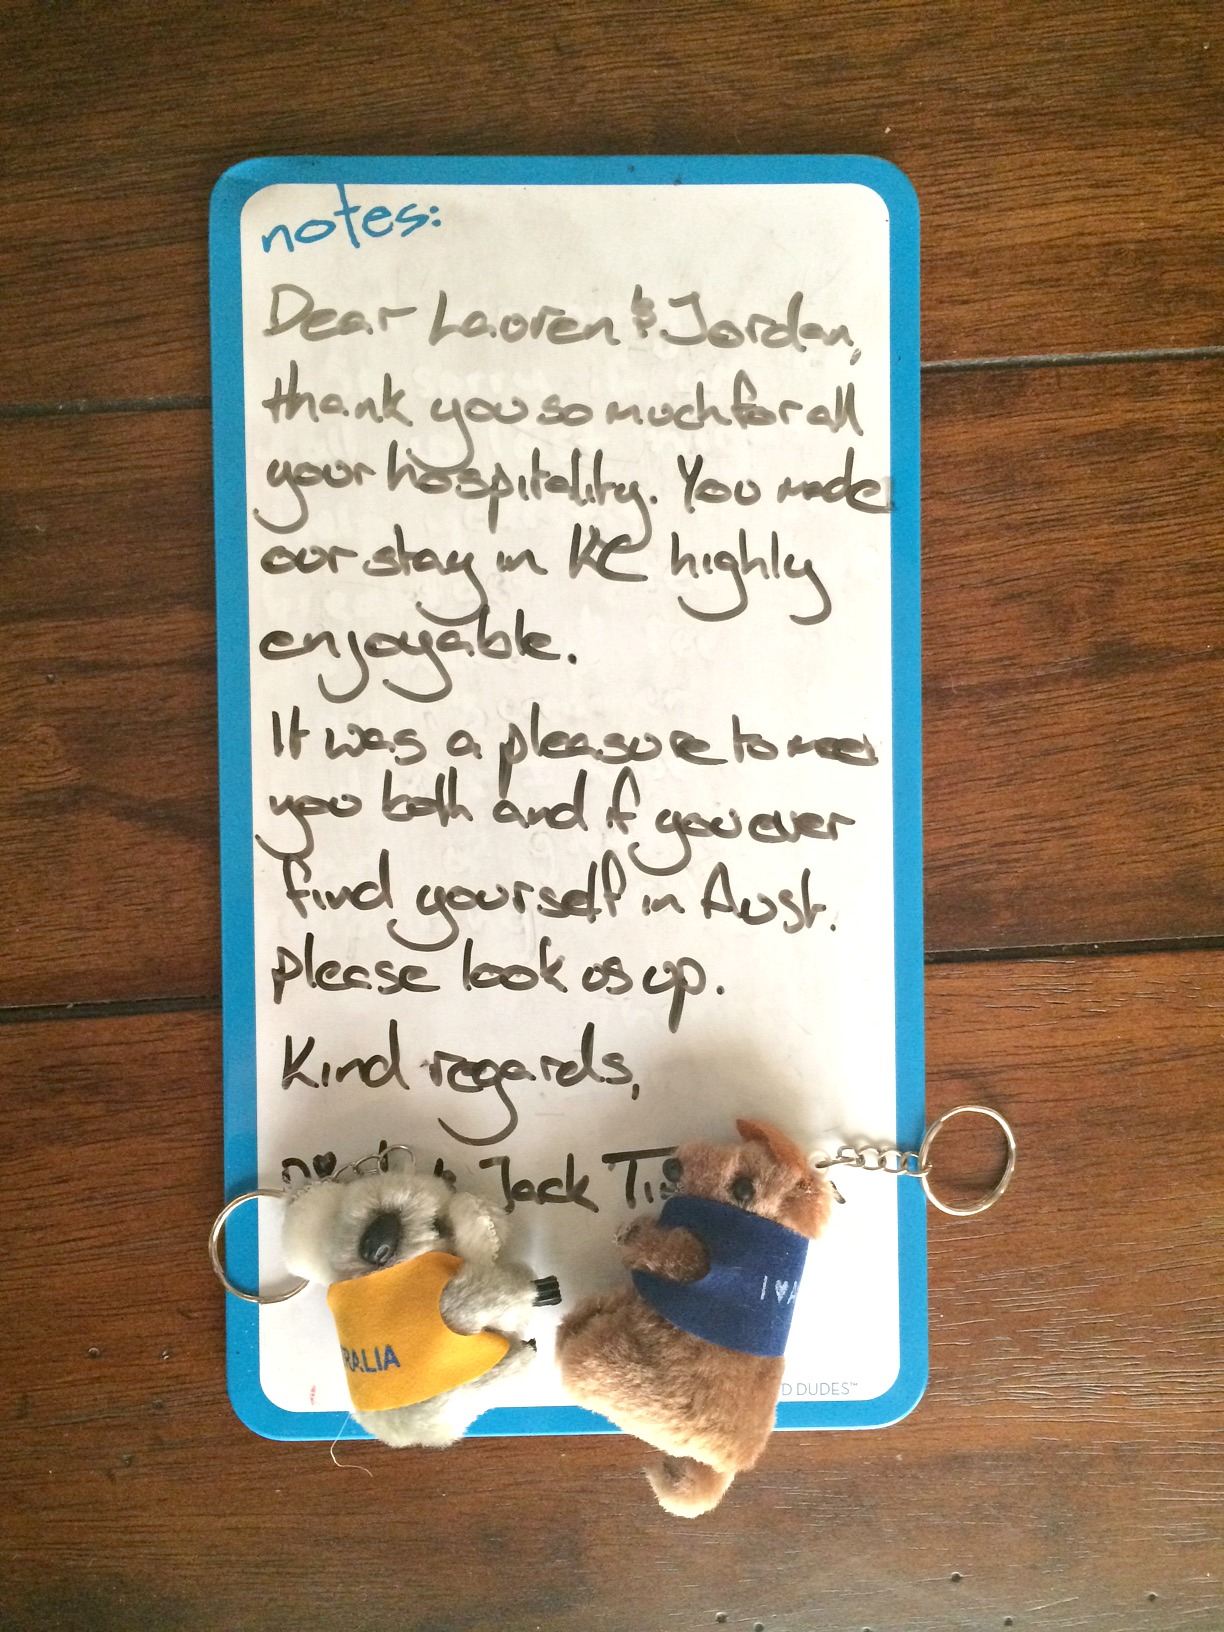 notes:
Dear Lauren & Jordan,
thank you so much for all
your hospitality. You made
our stay in KC highly
enjoyable.
It was a pleasure to meet
you both and if you ever
find yourself in Aust.
please look us up.
Kind regards,
Jack
RALIA
I ♥
D DUDES™